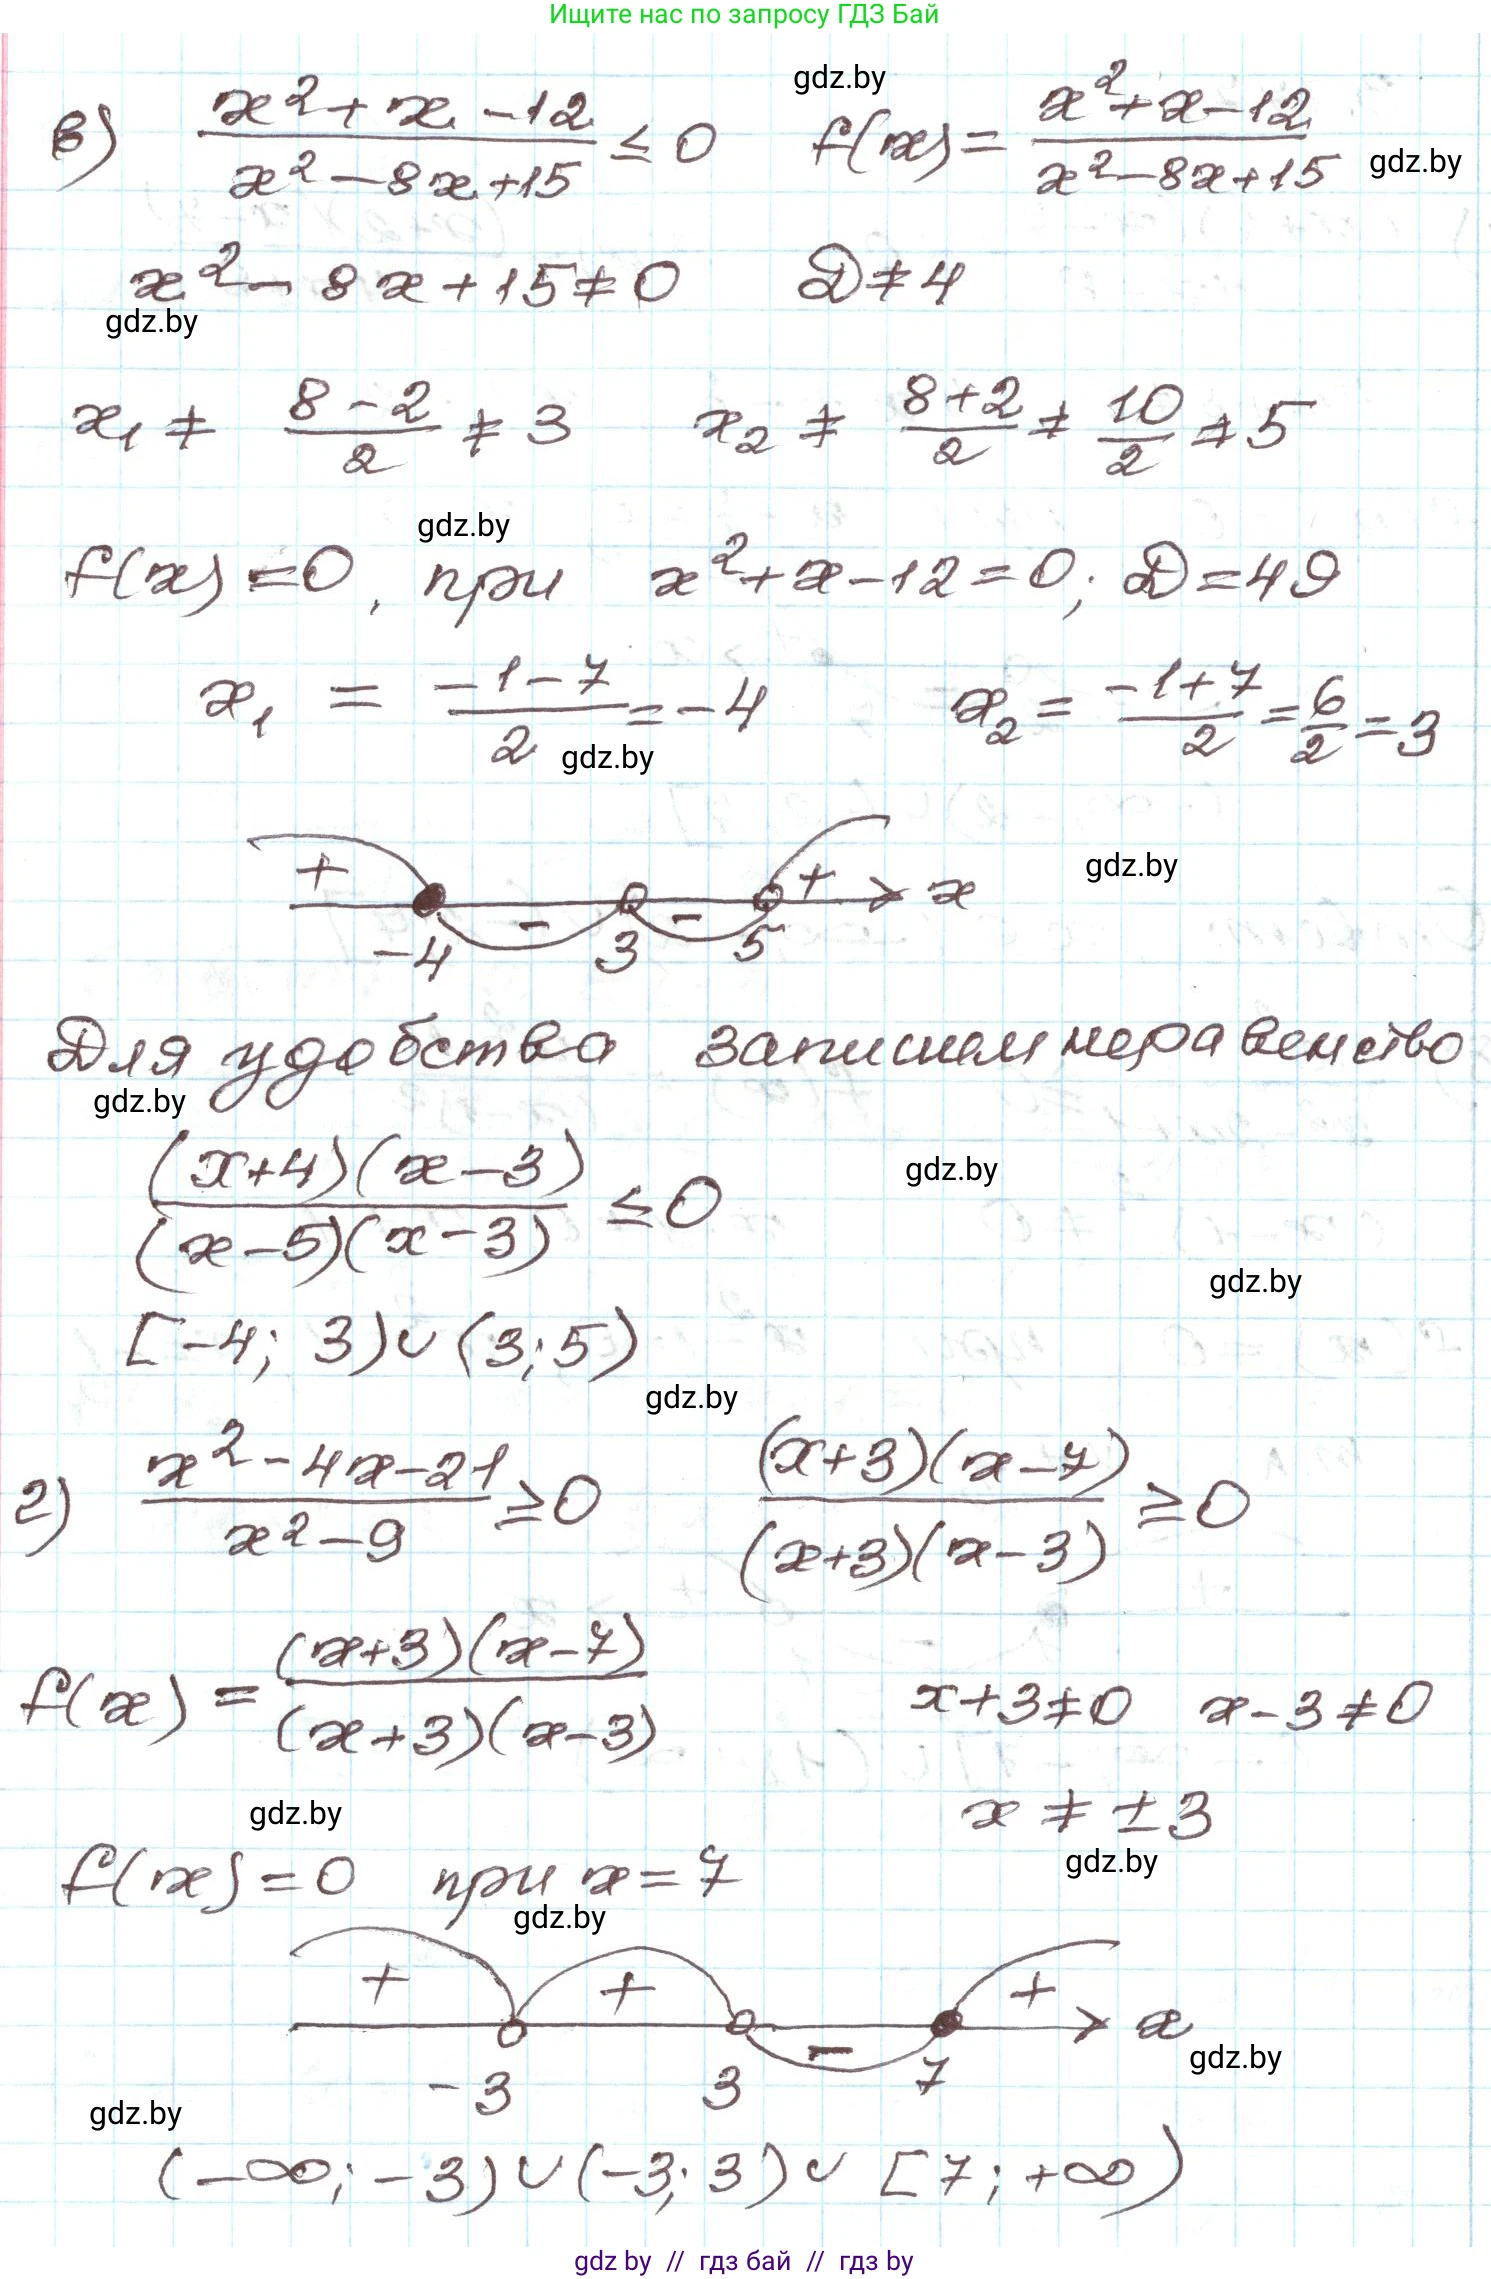 Ищите нас по запросу ГДЗ Бай
gdz.by
в) (x² + x - 12)/(x² - 8x + 15) ≤ 0 f(x) = (x² + x - 12)/(x² - 8x + 15) gdz.by
x² - 8x + 15 ≠ 0 D ≠ 4
gdz.by
x₁ ≠ (8 - 2)/2 ≠ 3 x₂ ≠ (8 + 2)/2 ≠ 10/2 ≠ 5
gdz.by
f(x) = 0, при x² + x - 12 = 0; D = 49
x₁ = (-1 - 7)/2 = -4 x₂ = (-1 + 7)/2 = 6/2 = 3
gdz.by
+ - - + x gdz.by
-4 3 5
Для удобства запишем неравенство
gdz.by
(x+4)(x-3)/(x-5)(x-3) ≤ 0 gdz.by
gdz.by
[-4; 3) ∪ (3; 5)
gdz.by
г) (x² - 4x - 21)/(x² - 9) ≥ 0 (x+3)(x-7)/(x+3)(x-3) ≥ 0
f(x) = (x+3)(x-7)/(x+3)(x-3) x+3 ≠ 0 x-3 ≠ 0
gdz.by x ≠ ±3
f(x) = 0 при x = 7 gdz.by
gdz.by
+ + - + x
gdz.by
-3 3 7
gdz.by
(-∞; -3) ∪ (-3; 3) ∪ [7; +∞)
gdz by // гдз бай // гдз by